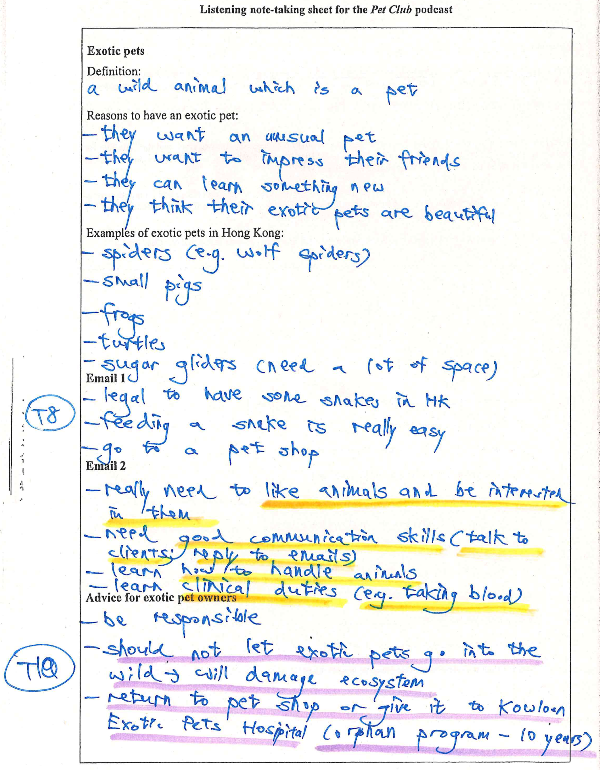 Listening note-taking sheet for the Pet Club podcast
Exotic pets
Definition:
a wild animal which is a pet
Reasons to have an exotic pet:
- they want an unusual pet
- they want to impress their friends
- they can learn something new
- they think their exotic pets are beautiful
Examples of exotic pets in Hong Kong:
- spiders (e.g. wolf spiders)
- small pigs
- frogs
- turtles
- sugar gliders (need a lot of space)
Email 1
- legal to have some snakes in HK
T8
- feeding a snake is really easy
- go to a pet shop
Email 2
- really need to like animals and be interested
in them
- need good communication skills (talk to
clients; reply to emails)
- learn how to handle animals
- learn clinical duties (e.g. taking blood)
Advice for exotic pet owners
- be responsible
- should not let exotic pets go into the
T10
wild → will damage ecosystem
- return to pet shop or give it to Kowloon
Exotic Pets Hospital (orphan program - 10 years)